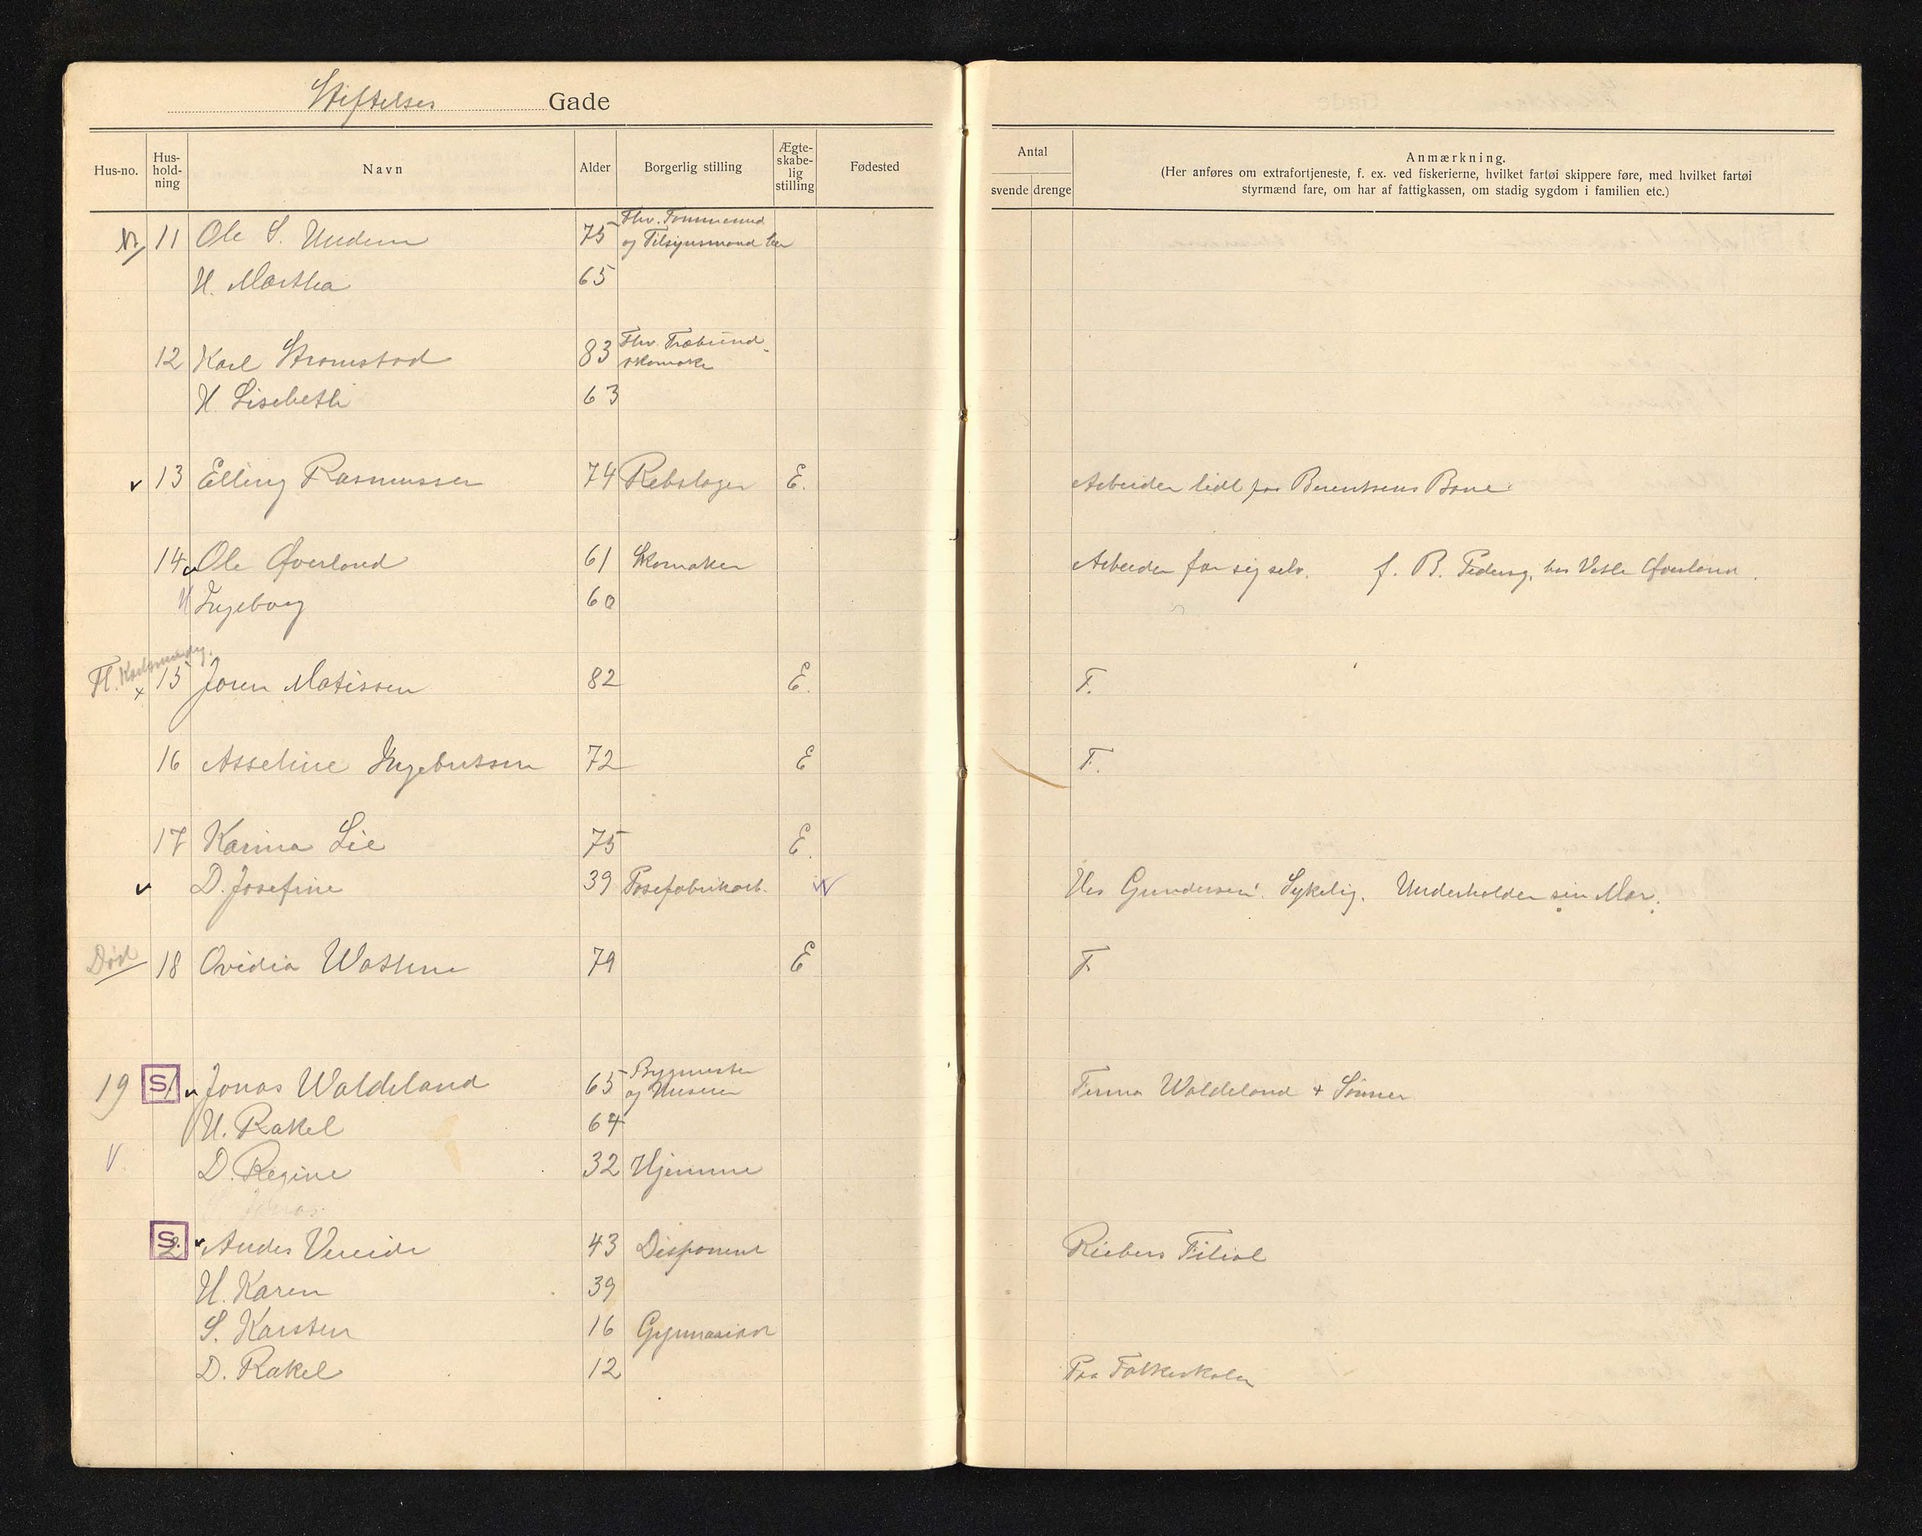 Stiftelses Gade
Hus-no. Hus-hold-ning Navn Alder Borgerlig stilling Ægte-skabe-lig stilling Fødested
Antal
svende drenge
Anmærkning.
(Her anføres om extrafortjeneste, f. ex. ved fiskerierne, hvilket fartøi skippere føre, med hvilket fartøi
styrmænd fare, om har af fattigkassen, om stadig sygdom i familien etc.)
11 Ole S. Undem 75 Fhv. Tømmermd
og Tilsynsmand her
H. Martha 65
12 Karl Strømstad 83 Fhv. Træbund-
skomake
H. Lisebeth 63
13 Elling Rasmussen 74 Rebslager E. Arbeider lidt paa Berentsens Bane
14 Ole Øverland 61 Skomaker Arbeider for sig selv. f. B. Pedersg. hos Vetle Øverland.
H Ingeborg 60
Fl.
15 Joren Matissen 82 E. F.
16 Asseline Ingebretsen 72 E F.
17 Karina Lie 75 E.
D. Josefine 39 Posefabrikarb. Hos Gundersen. Sykelig. Underholder sin Mor.
Død 18 Ovidia Wathne 79 E F
19 S 1 Jonas Waldeland 65 Bygmester
og Huseier Firma Waldeland + Sønner
H. Rakel 64
D. Regine 32 Hjemme
Jonas
S 2. Anders Vereide 43 Disponent Riebers Filial
H. Karen 39
S. Karsten 16 Gymnasiast
D. Rakel 12 Paa Folkeskolen